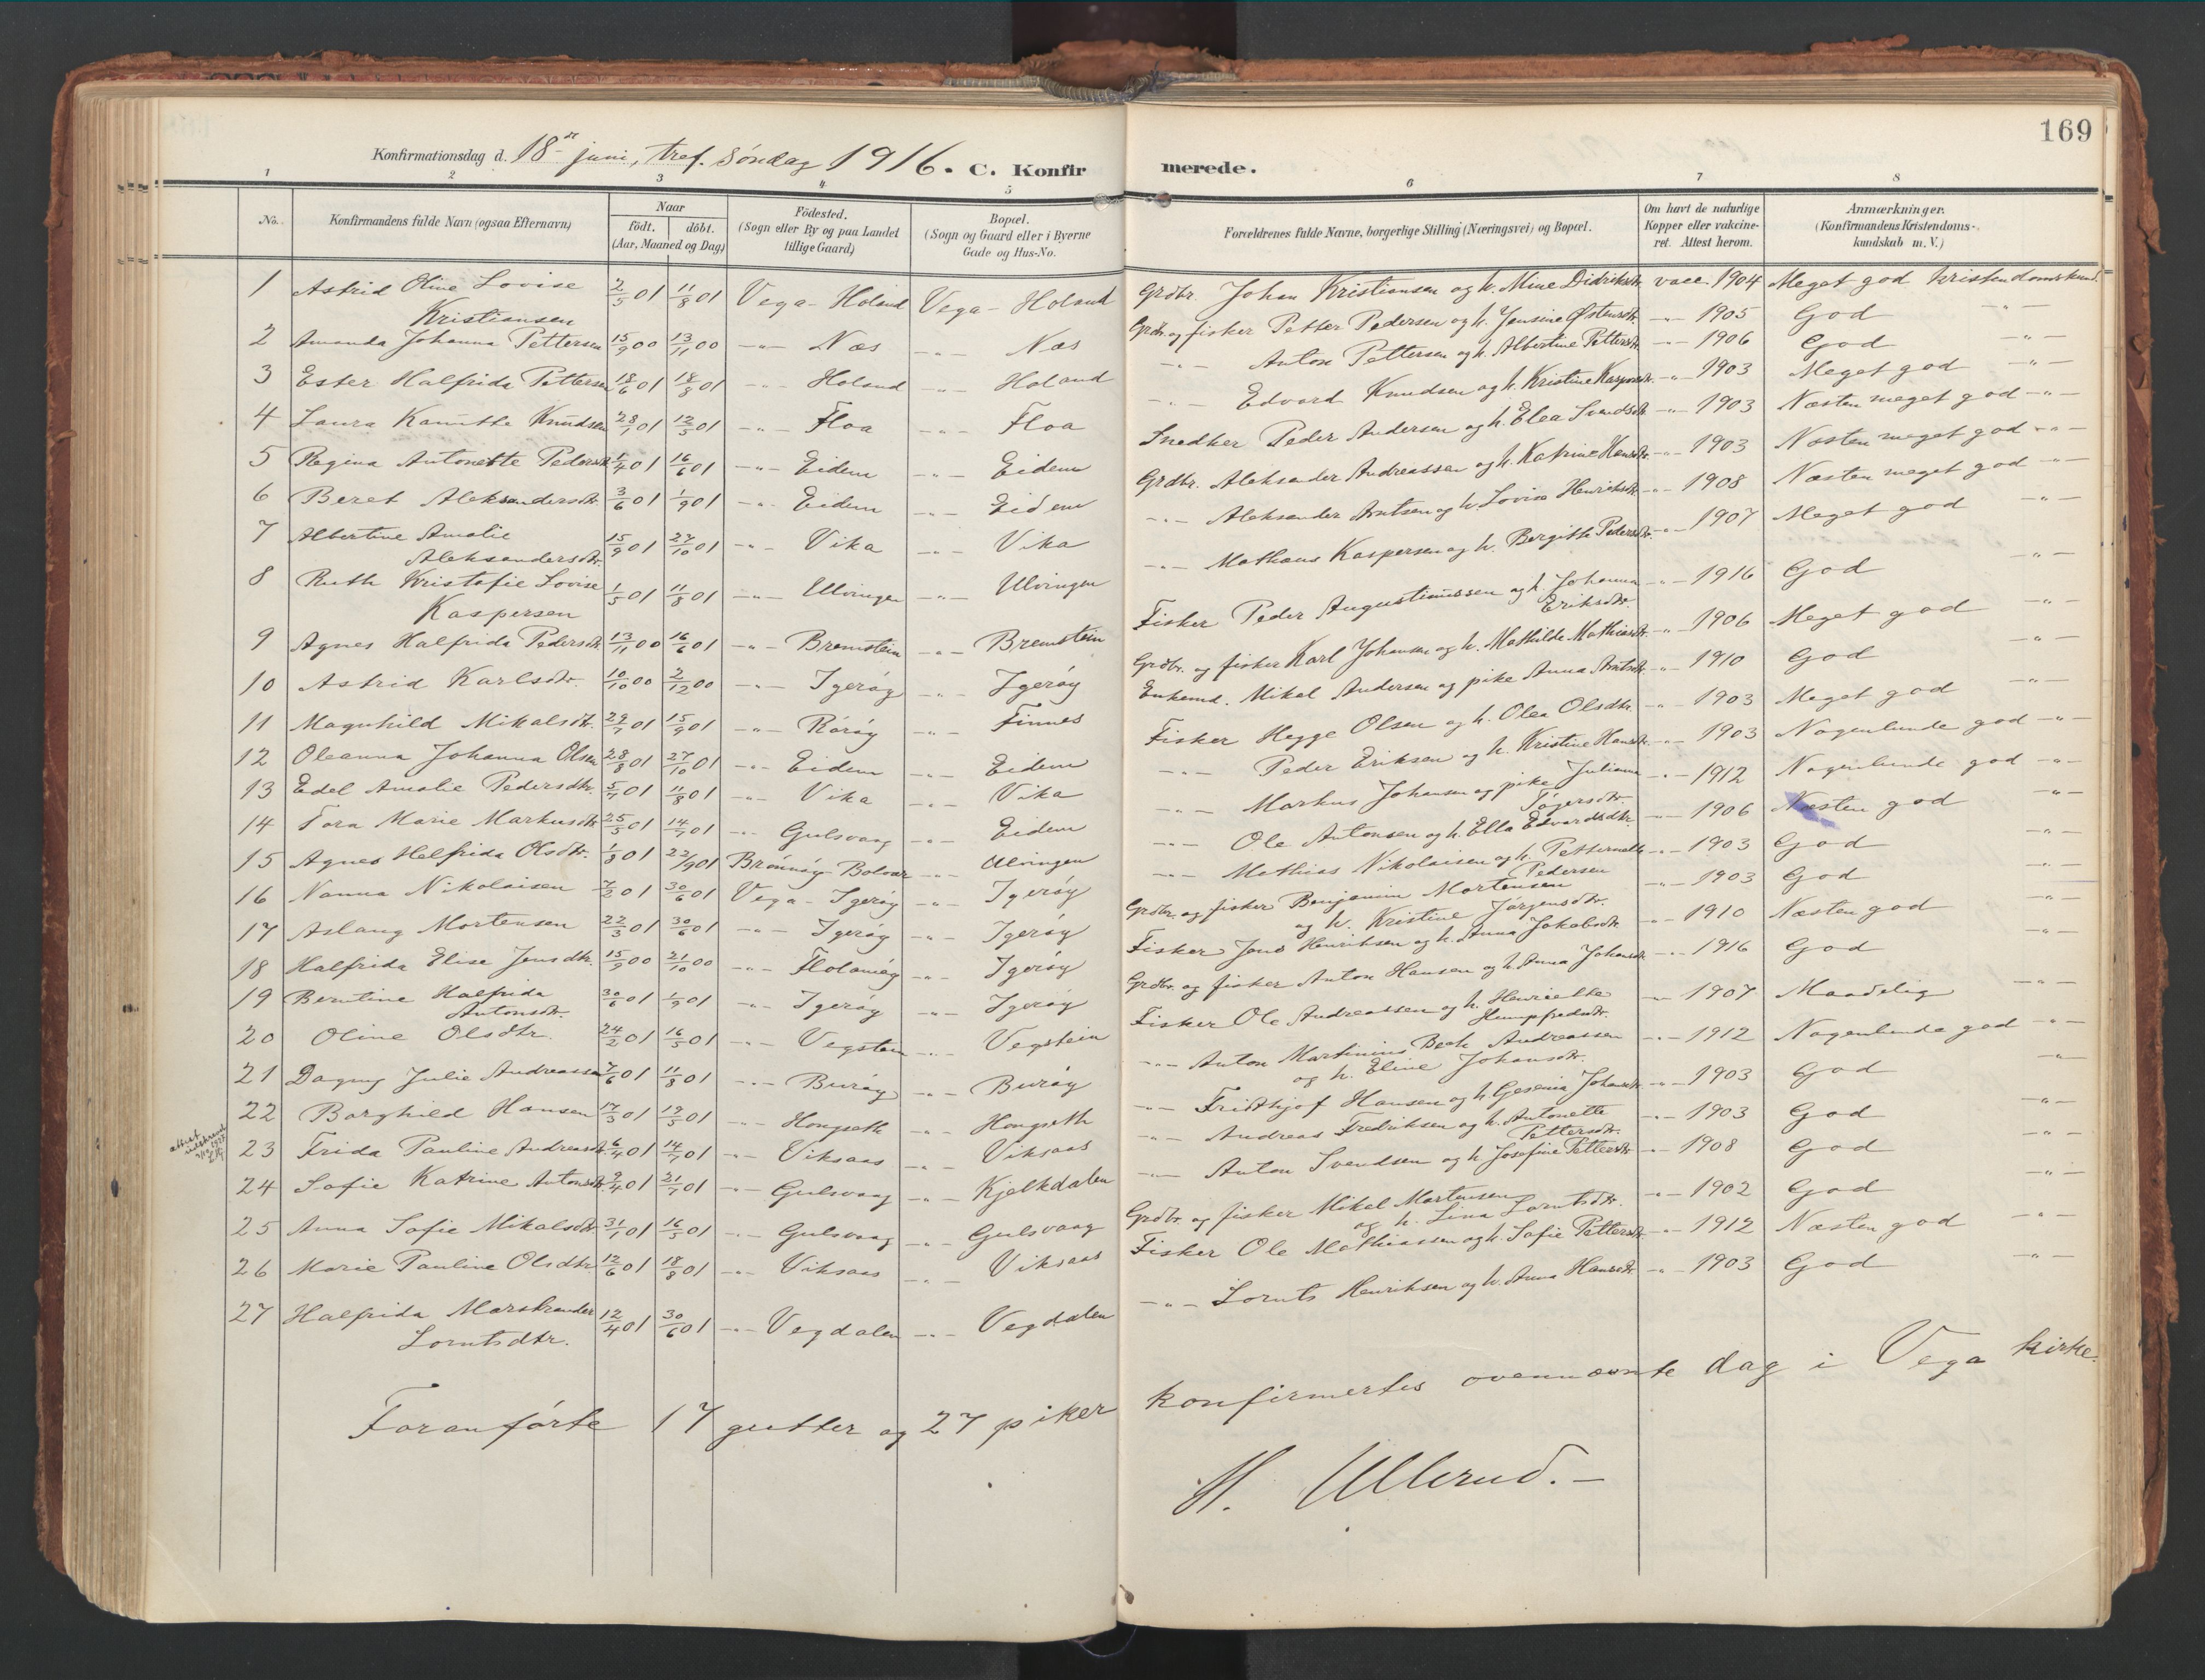 169
Konfirmationsdag d. 18de juni, tref. søndag 1916. C. Konfirmerede.
1 2 3 4 5 6 7 8
No. Konfirmandens fulde Navn (ogsaa Efternavn) Naar født. døbt. (Aar, Maaned og Dag) Fødested. (Sogn eller By og paa Landet tillige Gaard) Bopæl. (Sogn og Gaard eller i Byerne Gade og Hus-No. Forældrenes fulde Navne, borgerlige Stilling (Næringsvei) og Bopæl. Om havt de naturlige Kopper eller vaccineret. Attest herom. Anmærkninger. (Konfirmandens Kristendomskundskab m. V.)
1 Astrid Oline Lovise Kristiansen 2/5 01 11/8 01 Vega - Holand Vega - Holand Grdbr. Johan Kristiansen og h. Mine Didriksdtr. vacc. 1904 Meget god kristendomskund.
2 Amanda Johanna Pettersen 15/9 00 13/11 00 -"- Næs -"- Næs Grdbr. og fisker Petter Pedersen og h. Jensine Østensdtr. -"- 1905 God -"-
3 Ester Halfrida Pettersen 18/6 01 18/8 01 -"- Holand -"- Holand -"- Anton Pettersen og h. Albertine Pettersdtr. -"- 1906 God -"-
4 Laura Kanutte Knudsen 28/1 01 12/5 01 -"- Floa -"- Floa -"- Edvard Knudsen og h. Kristine Kaspersdtr. -"- 1903 Meget god "
5 Regina Antonette Pedersdtr. 1/4 01 16/6 01 -"- Eidem -"- Eidem Snedker Peder Andersen og h. Elea Svendsdtr. -"- 1903 Næsten meget god -"-
6 Beret Aleksandersdtr. 3/6 01 1/9 01 -"- Eidem -"- Eidem Grdbr. Aleksander Andreassen og h. Katrine Hansdtr. -"- 1903 Næsten meget god -"-
7 Albertine Amalie Aleksandersdtr. 15/9 01 27/10 01 -"- Vika -"- Vika -"- Aleksander Arntsen og h. Lovise Henriksdtr. -"- 1908 Næsten meget god -"-
8 Ruth Kristofie Lovise Kaspersen 1/5 01 11/8 01 -"- Ulvingen -"- Ulvingen -"- Mathæus Kaspersen og h. Bergitte Pedersdtr. -"- 1907 Meget god -"-
9 Agnes Halfrida Pedersdtr. 13/11 00 16/6 01 -"- Bremstein -"- Bremstein Fisker Peder Augustinussen og h. Johanna Eriksdtr. -"- 1916 God -"-
10 Astrid Karlsdtr. 10/10 00 2/12 00 -"- Igerøy -"- Igerøy Grdbr. og fisker Karl Johansen og h. Mathilde Mathiasdtr. -"- 1906 Meget god -"-
11 Magnhild Mikalsdtr. 29/7 01 15/9 01 -"- Rørøy -"- Finnes Enkemd. Mikal Andersen og pike Anna Arntsdtr. -"- 1910 God -"-
12 Oleanna Johanna Olsen 28/8 01 27/10 01 -"- Eidem -"- Eidem Fisker Hegge Olsen og h. Olea Olsdtr. -"- 1903 Meget god -"-
13 Edel Amalie Pedersdtr. 5/7 01 11/8 01 -"- Vika -"- Vika -"- Peder Eriksen og h. Kristine Hansdtr. -"- 1903 Nogenlunde god -"-
14 Tora Marie Markusdtr 25/5 01 14/7 01 -"- Gulsvaag -"- Eidem -"- Markus Johansen og pike Juliana Tøgersdtr. -"- 1912 Nogenlunde god -"-
15 Agnes Helfrida Olsdtr. 1/8 01 22/9 01 Brønnøy Bolvær -"- Ulvingen -"- Ole Antonsen og h. Ella Edvardsdtr. -"- 1906 Næsten god -"-
16 Nanna Nikolaisen 7/2 01 30/6 01 Vega - Igerøy -"- Igerøy -"- Mathias Nikolaisen og h. Petternelle Pedersen -"- 1903 God -"-
17 Aslaug Mortensen 22/3 01 30/6 01 -"- Igerøy -"- Igerøy Grdbr. og fisker Benjamin Mortensen og h. Kristine Jørgensdtr. -"- 1903 God -"-
18 Halfrida Elise Jensdtr. 15/9 00 21/10 00 -"- Floløimøy -"- Igerøy Fisker Jens Henriksen og h. Anna Jakobsdtr. -"- 1910 Næsten god -"-
19 Berntine Halfrida Antonsdtr. 30/6 01 1/9 01 -"- Igerøy -"- Igerøy Grdbr. og fisker Anton Hansen og h. Anna Johansdtr. -"- 1916 God -"-
20 Oline Olsdtr. 24/2 01 16/5 01 -"- Vegstein -"- Vegstein Fisker Ole Andreassen og h. Henriette Humpfredsdtr. -"- 1907 Maadelig -"-
21 Dagny Julie Andreassen 7/6 01 11/8 01 -"- Burøy -"- Burøy -"- Anton Martinius Bech Andreassen og h. Eline Johansdtr. -"- 1912 Nogenlunde god -"-
22 Borghild Hansen 17/3 01 19/5 01 -"- Hongseth -"- Hongseth -"- Fridthjof Hansen og h. Gesenia Johansdtr. -"- 1903 God -"-
23 Frida Pauline Andreasdtr. 6/4 01 14/7 01 -"- Viksaas -"- Viksaas -"- Andreas Fredriksen og h. Antonette Pettersdtr. -"- 1903 God -"-
24 Sofie Katrine Antonsdtr. 9/4 01 21/7 01 -"- Gulsvaag -"- Kjelkdalen -"- Anton Svendsen og h. Josefine Pettersdtr -"- 1908 God -"-
25 Anna Sofie Mikalsdtr. 31/1 01 16/5 01 -"- Gulsvaag -"- Gulsvaag Grdbr. og fisker Mikal Mortensen og h. Lina Lorntsdtr. -"- 1902 God -"-
26 Marie Pauline Olsdtr. 12/6 01 18/8 01 -"- Viksaas -"- Viksaas Fisker Ole Mathiassen og h. Sofie Pettersdtr -"- 1912 Næsten god -"-
27 Halfrida Marstrander Lorntsdtr. 12/4 01 30/6 01 -"- Vegdalen -"- Vegdalen -"- Lornts Henriksen og h. Anna Hansdtr. -"- 1903 God -"-
Foranførte 17 gutter og 27 piker konfirmertes ovennævnte dag i Vega kirke.
H. Ullerud.-